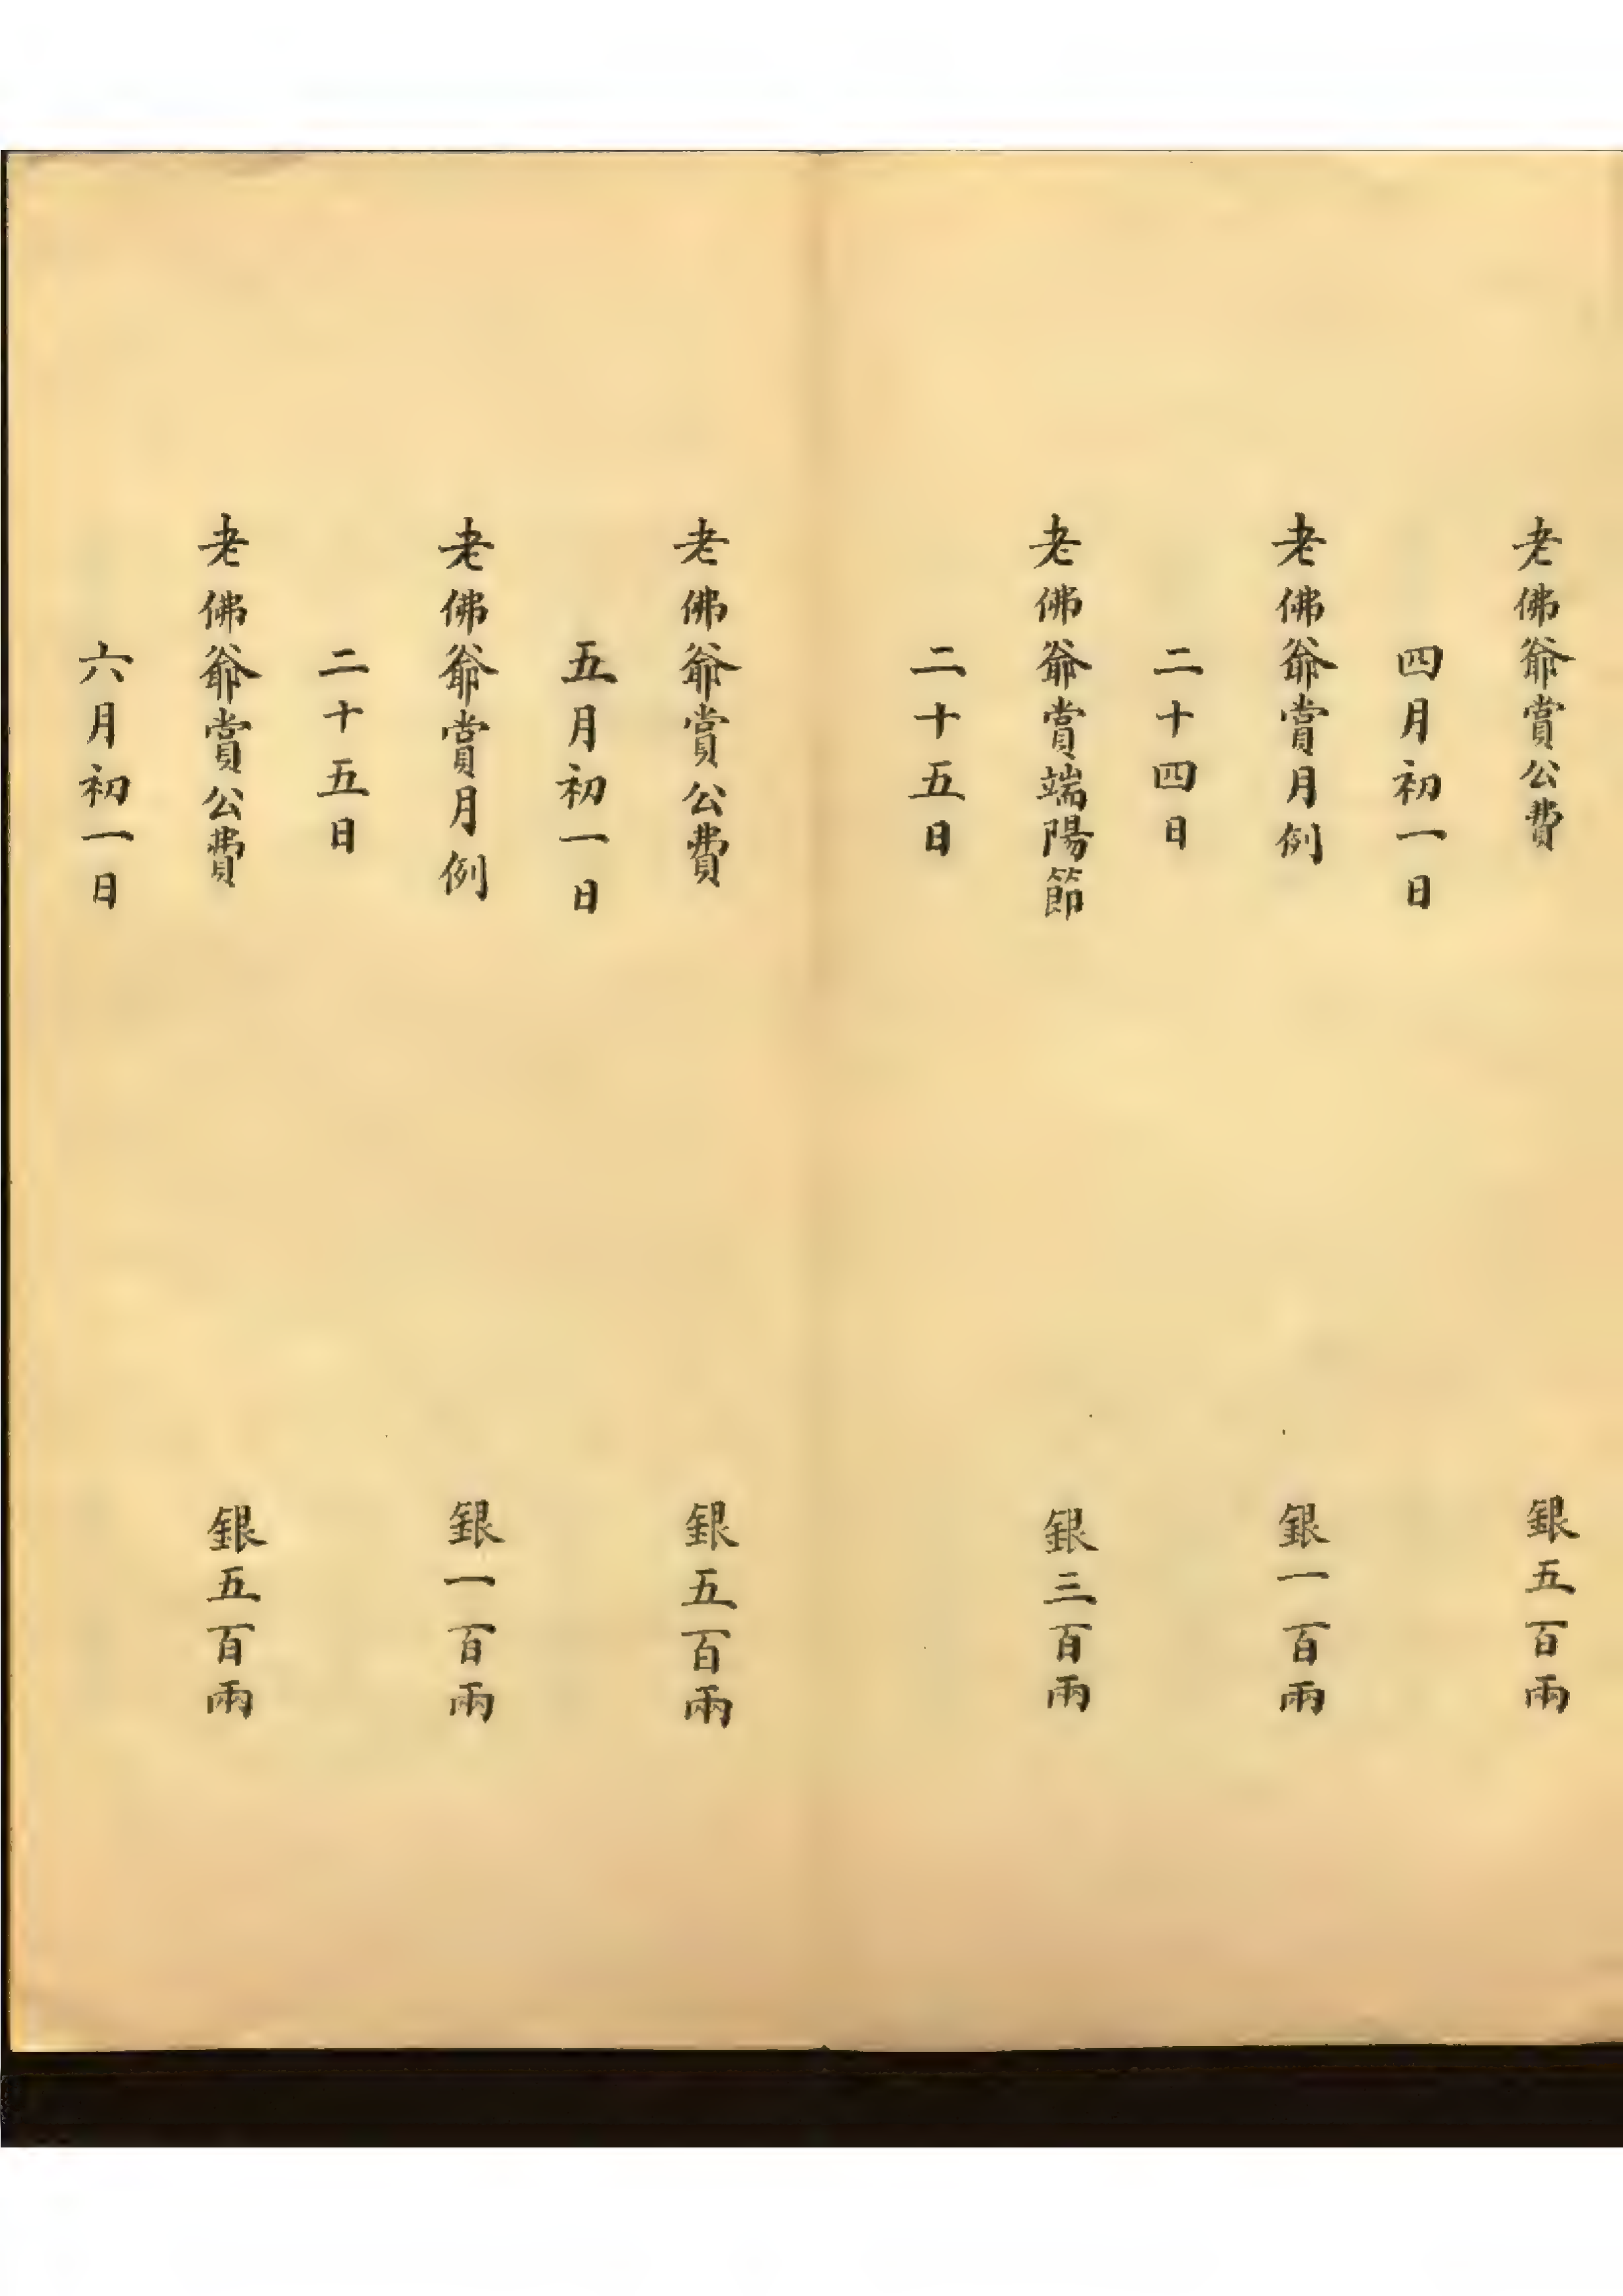 老佛爺賞公費 銀五百兩
四月初一日
老佛爺賞月例 銀一百兩
二十四日
老佛爺賞端陽節 銀三百兩
二十五日
老佛爺賞公費 銀五百兩
五月初一日
老佛爺賞月例 銀一百兩
二十五日
老佛爺賞公費 銀五百兩
六月初一日